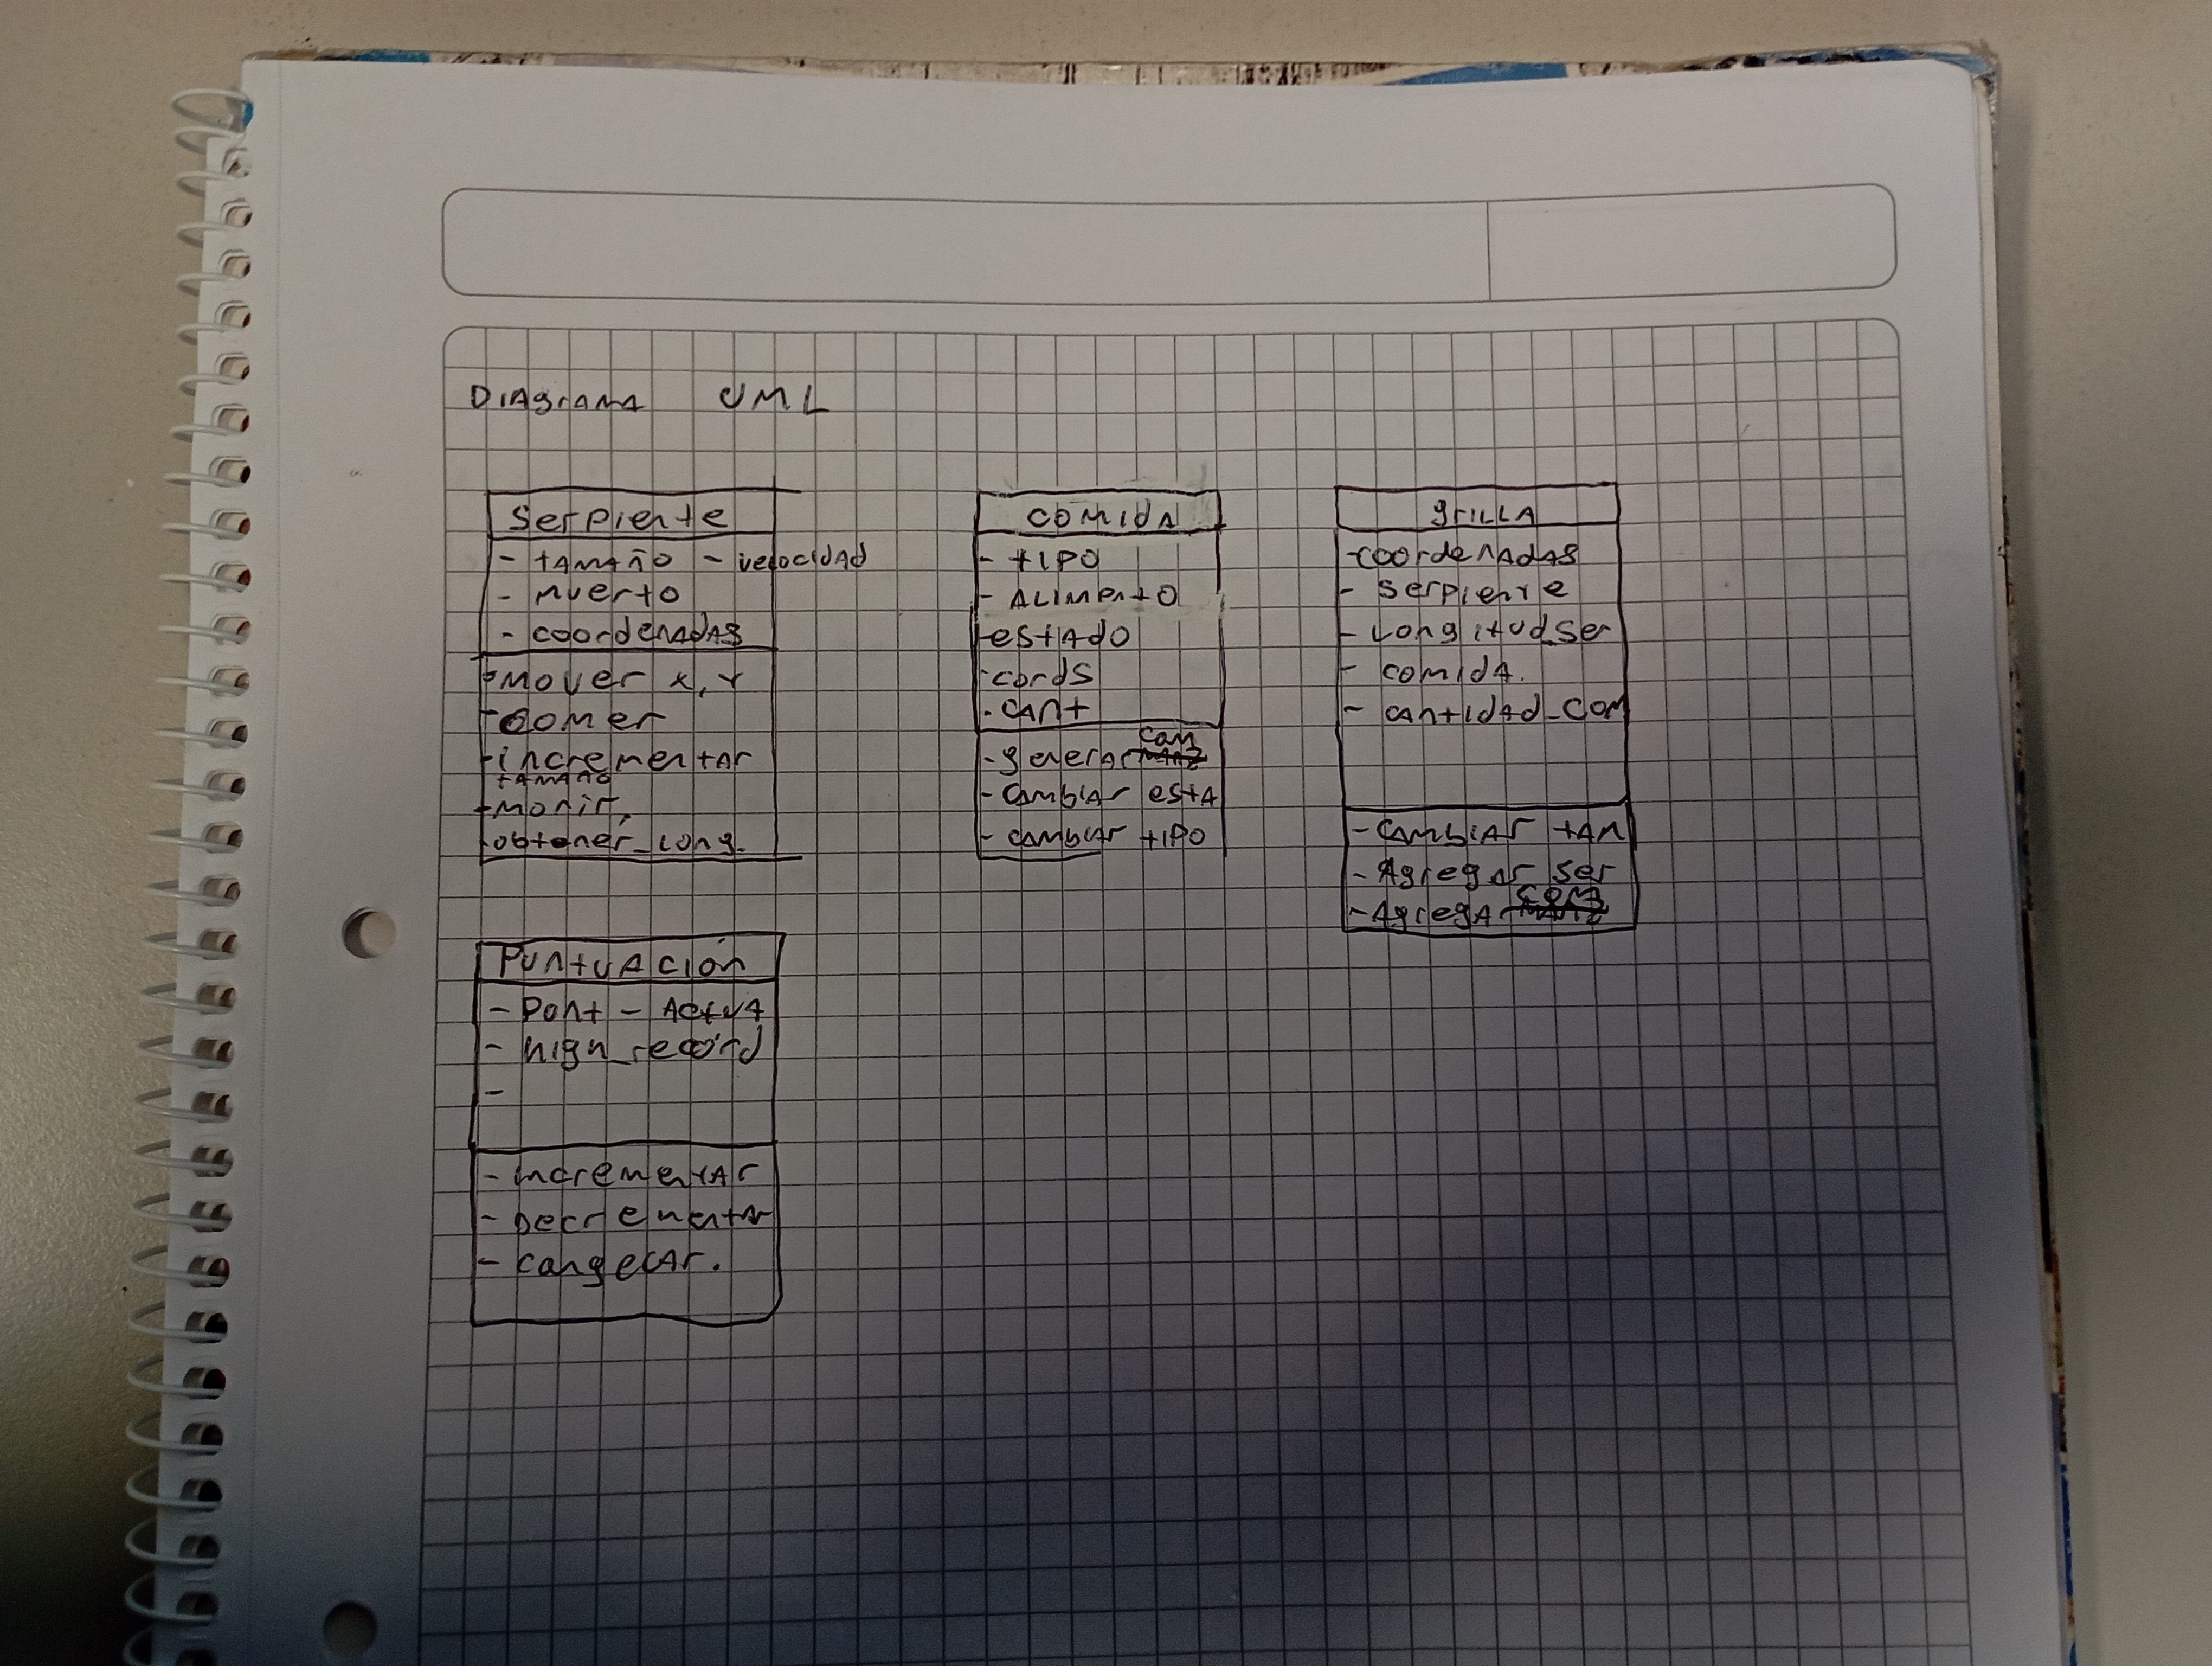 DIAgrAMA UML
Serpiente
- tAMAño - velocidAd
- muerto
- coordenAdAs
- Mover x, y
- comer
- incrementAr
tAMAño
- morir.
- obtener_long.
COMIdA
- tIPO
- ALIMENtO
- estAdo
- cords
- CAnt
com
- generAr
- CAMbIAr estA
- CAMbIAr tIPO
grILLA
- coordenAdAs
- serpiente
- Longitud_Ser
- comIdA.
- CAntIdAd_COM
- CAMbIAr tAM
- Agregar ser
com
- AgregA
PuntuAción
- Pont - ActuA
- high_record
-
- incrementAr
- Decrementar
- congelAr.